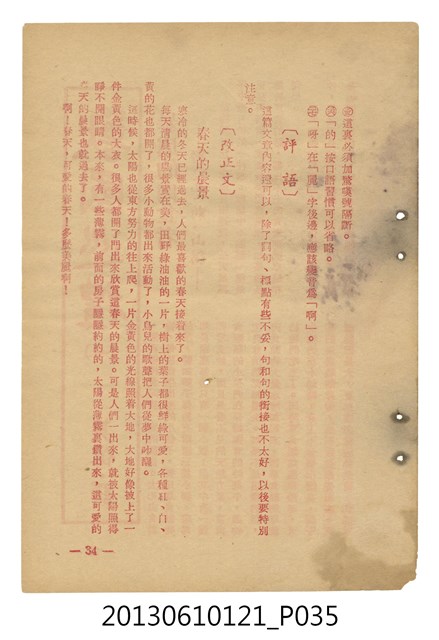 這裏必須加驚嘆號隔斷。
「的」按口語習慣可以省略。
「呀」在「麗」字後邊，應該變音爲「啊」。
〔評語〕
這篇文章內容還可以，除了詞句、標點有些不妥，句和句的銜接也不太好，以後要特別
注意。
〔改正文〕
春天的晨景
寒冷的冬天已經過去，人們最喜歡的春天接着來了。
每天清晨的風景實在美，田野綠油油的一片，樹上的葉子都很鮮綠可愛，各種紅、白、
黃的花也都開了，很多小動物都出來活動了，小鳥兒的歌聲把人們從夢中吵醒。
這時候，太陽也從東方努力的往上爬，一片金黃色的光線照着大地，大地好像披上了一
件金黃色的大衣。很多人都開了門出來欣賞這春天的晨景。可是人們一出來，就被太陽照得
睜不開眼睛。本來，有一些薄霧，前面的房子隱隱約約的，太陽從薄霧裏鑽出來，這可愛的
天的晨景也就過去了。
啊！春天，可愛的春天！多麼美麗啊！
— 34 —
20130610121_P035